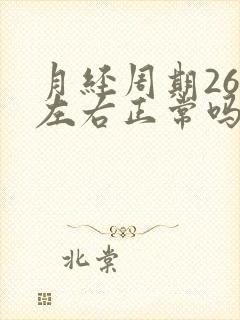 月经周期26
左右正常吗
北棠